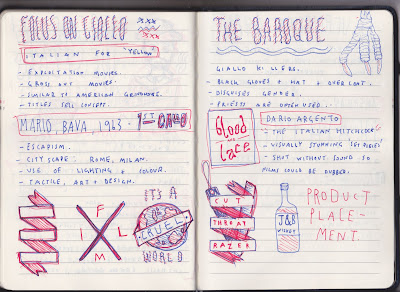 FOCUS ON GIALLO
ITALIAN FOR "YELLOW"
- EXPLOITATION MOVIES.
- GROSS OUT MOVIES.
- SIMILAR TO AMERICAN GRINDHOUSE.
- TITLES SELL CONCEPT.
MARIO, BAVA, 1963 - 1ST
- ESCAPISM.
- CITY SCAPE: ROME, MILAN.
- USE OF LIGHTING + COLOUR.
- TACTILE, ART + DESIGN.
FILM
IT'S A
CRUEL
WORLD
THE BAROQUE
GIALLO KILLERS.
- BLACK GLOVES + HAT + OVERCOAT.
- DISGUISES GENDER.
- PRIESTS ARE OFTEN USED.
Blood
and
Lace
DARIO ARGENTO
- "THE ITALIAN HITCHCOCK"
- VISUALLY STUNNING 'SET PIECES'
- SHOT WITHOUT SOUND SO
FILMS COULD BE DUBBED.
CUT
THROAT
RAZER
J&B
WHISKY
PRODUCT
PLACE-
MENT.